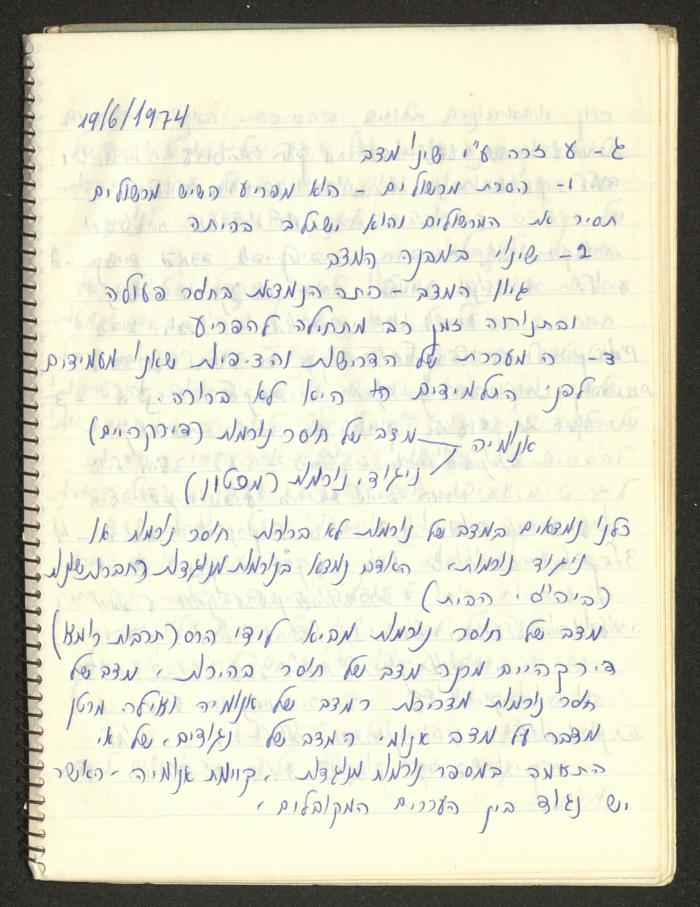 19/6/1974
ג- עזרה ע"י שינוי מצב
1- הסרת מכשולים - הוא מפריע כשיש מכשולים
תסיר את המכשולים והוא ישתלב בכיתה
2- שינוי במבנה המצב
גיוון המצב - כיתה הנמצאת בחוסר פעולה
ובהמתנה זמן רב מתחילה להפריע.
המערכת של הדרישות והציפיות שאנו מעמידים
לפני התלמידים היא לא ברורה.
אנומיה מצב של חוסר נורמות (דירקהיים)
ניגודי נורמות (מרטון)
כלנו נמצאים במצב של נורמות לא ברורות חוסר נורמות או
ניגוד נורמות. האדם נמצא בנורמות מנוגדות
(ביה"ס, הבית)
מצב של חוסר נורמות מביא לידי הרס
דירקהיים מכנה מצב של חוסר בהירות, מצב של
חסר נורמות כמצב של אנומיה ואילו מרטון
מדבר על מצב אנומי המצב של נגודים, של אי
התאמה במספר נורמות מנוגדות, קיימת אנומיה, כאשר
יש נגוד בין הערכים המקובלים,